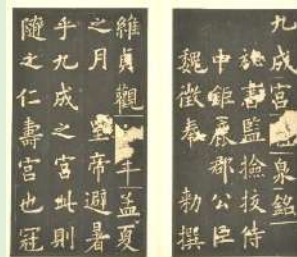 九成宮泉銘
書監撿挍侍
中鉅鹿郡公臣
魏徵奉 勅撰
維貞觀年孟夏
之月 皇帝避暑
乎九成之宮此則
隨之仁壽宮也冠